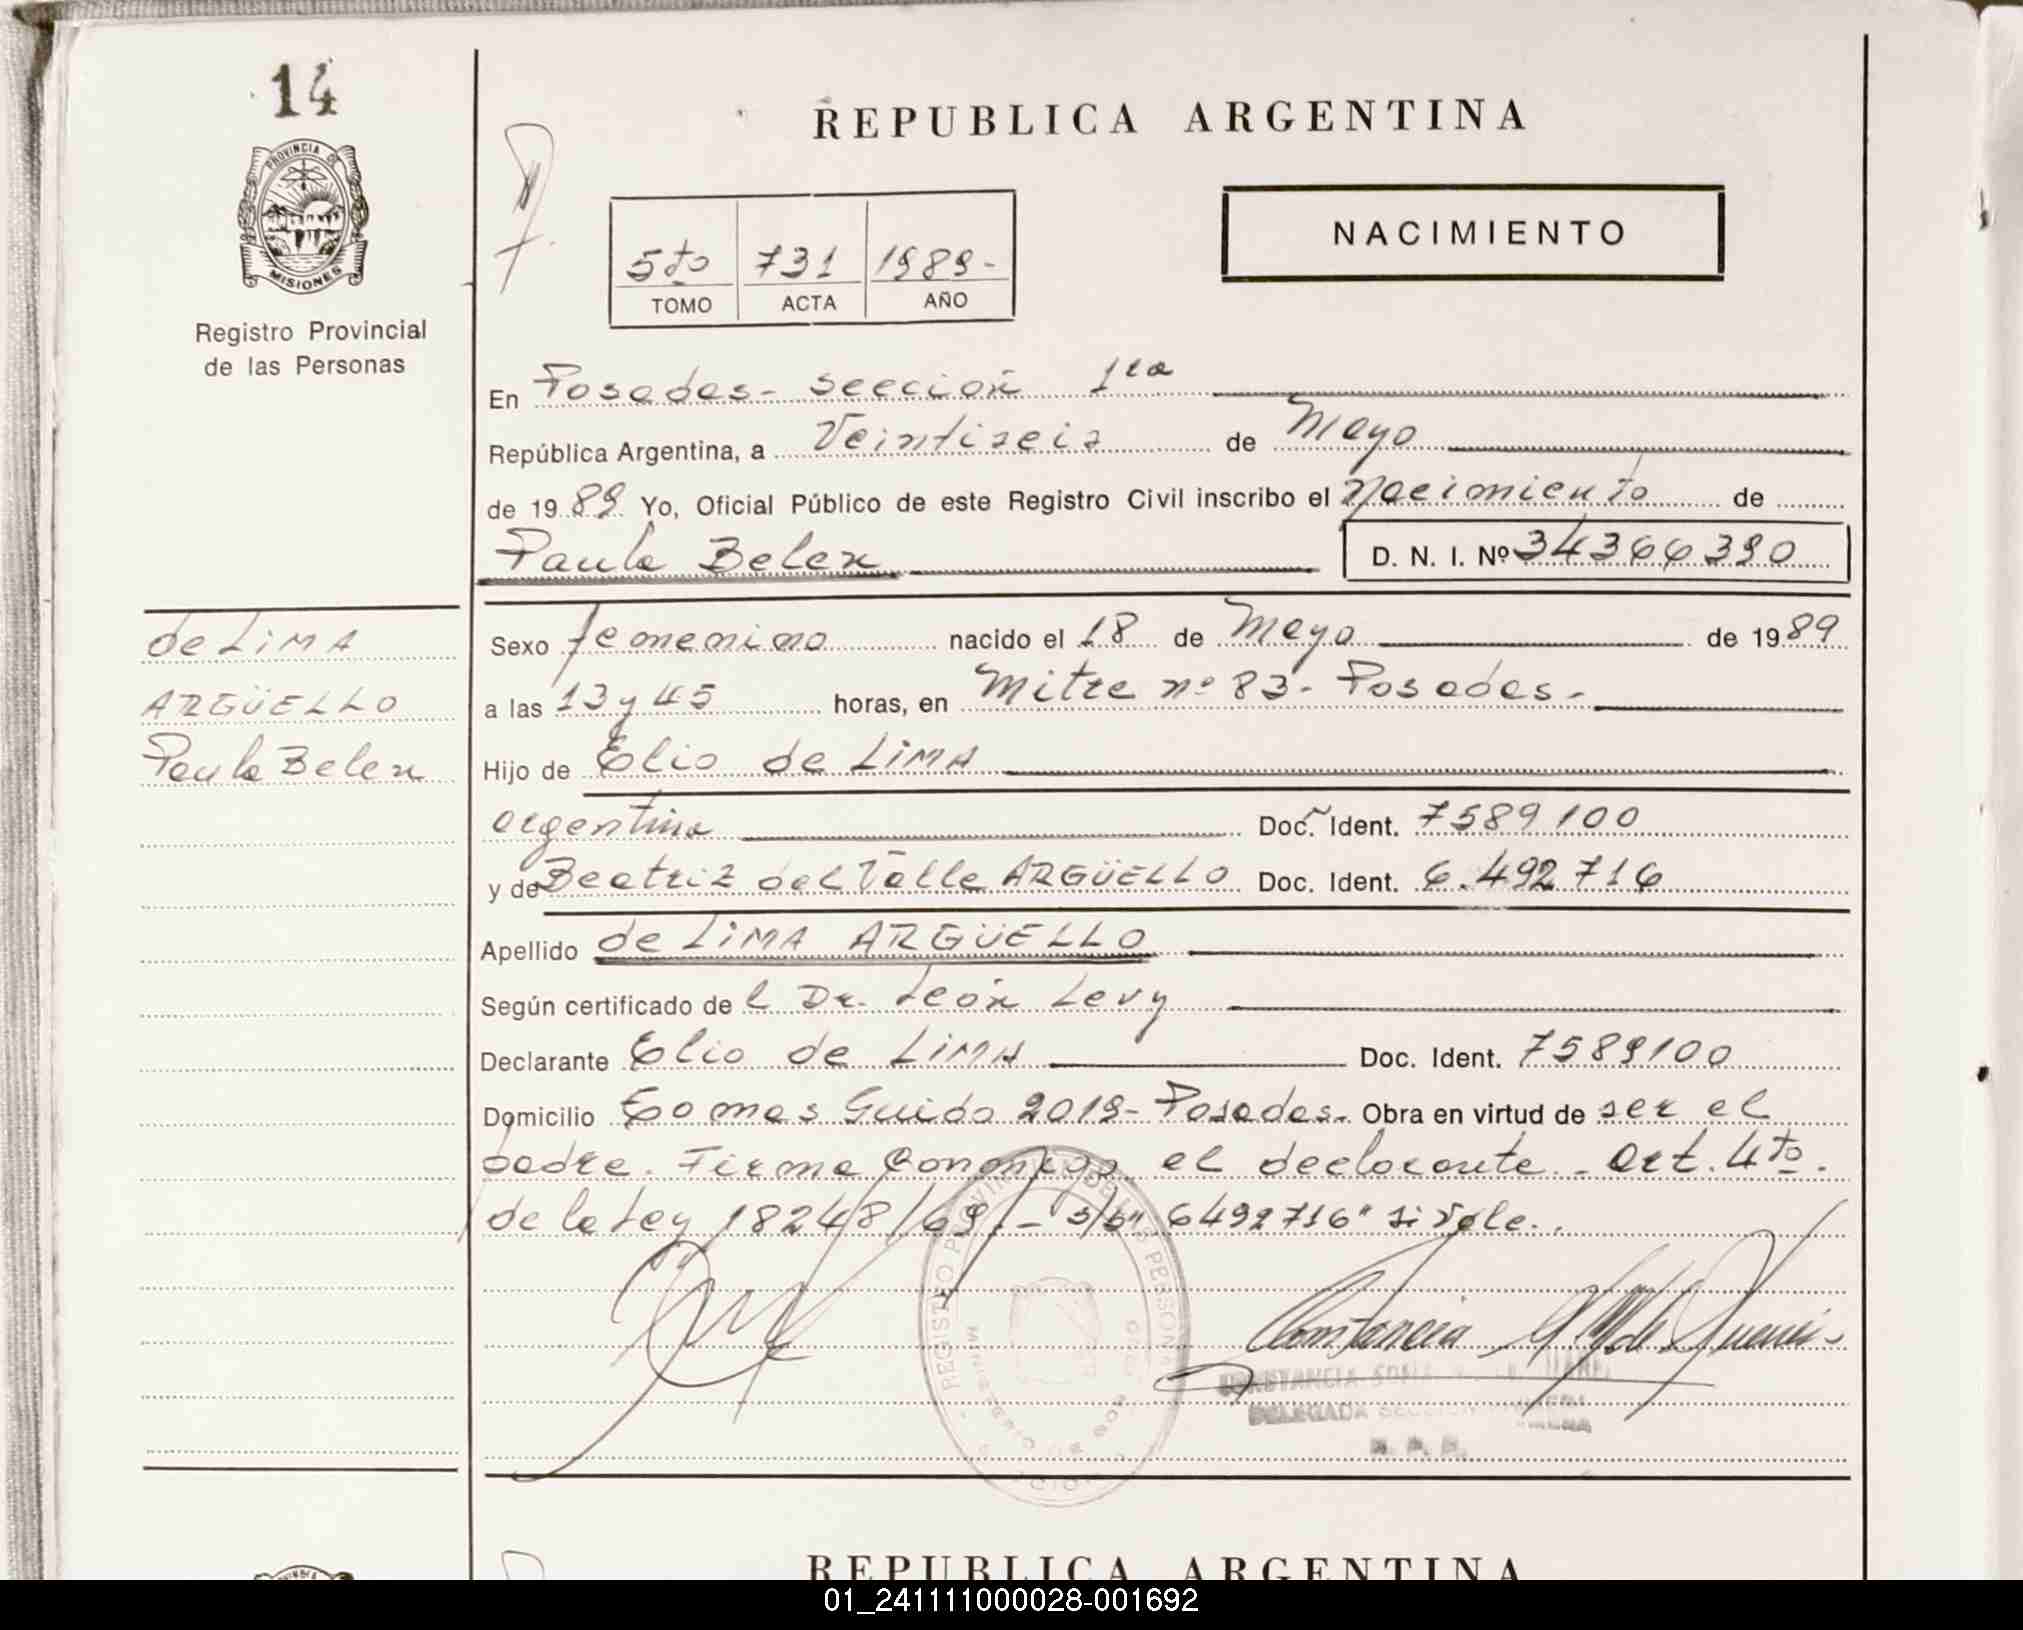 14
REPUBLICA ARGENTINA
PROVINCIA DE
MISIONES
Registro Provincial
de las Personas
5to 731 1989-
TOMO ACTA AÑO
NACIMIENTO
En Posadas - sección 1ra
República Argentina, a Veintiseis de Mayo
de 1989 Yo, Oficial Público de este Registro Civil inscribo el Nacimiento de
Paula Belen D. N. I. Nº 34366390
de LiMA
ARGÜELLO
Paula Belen
Sexo femenino nacido el 18 de Mayo de 1989
a las 13 y 45 horas, en Mitre nº 83 - Posadas -
Hijo de Elio de LiMA
argentina Doc. Ident. 7589100
y de Beatriz del Valle ARGÜELLO Doc. Ident. 6.492716
Apellido de LiMA ARGÜELLO
Según certificado de l Dr. León Levy
Declarante Elio de LiMA Doc. Ident. 7589100
Domicilio Tomas Guido 2019 - Posadas. Obra en virtud de ser el
padre. Firma conmigo el declarante - Art. 4to.
de la Ley 18248/69. - s/b" 6492716" si vale.
REGISTRO PROVINCIAL DE LAS PERSONAS
MINISTERIO DE GOB
Constancia
CONSTANCIA
DELEGADA SECCION PRIMERA
R. P. P.
REPUBLICA ARGENTINA
01_241111000028-001692